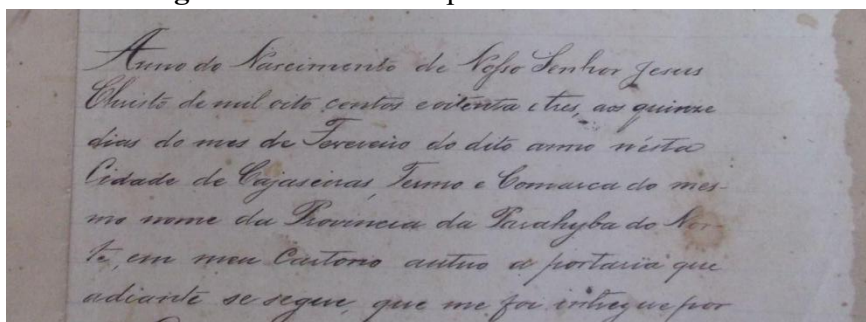 Anno do Nascimento de Nosso Senhor Jesus
Christo de mil oito centos e oitenta e tres, aos quinze
dias do mes de Fevereiro do dito anno nésta
Cidade de Cajaseiras, Termo e Comarca do mes-
mo nome da Provincia da Parahyba do Nor-
te, em meu Cartorio autuo a portaria que
adiante se segue, que me foi entregue por